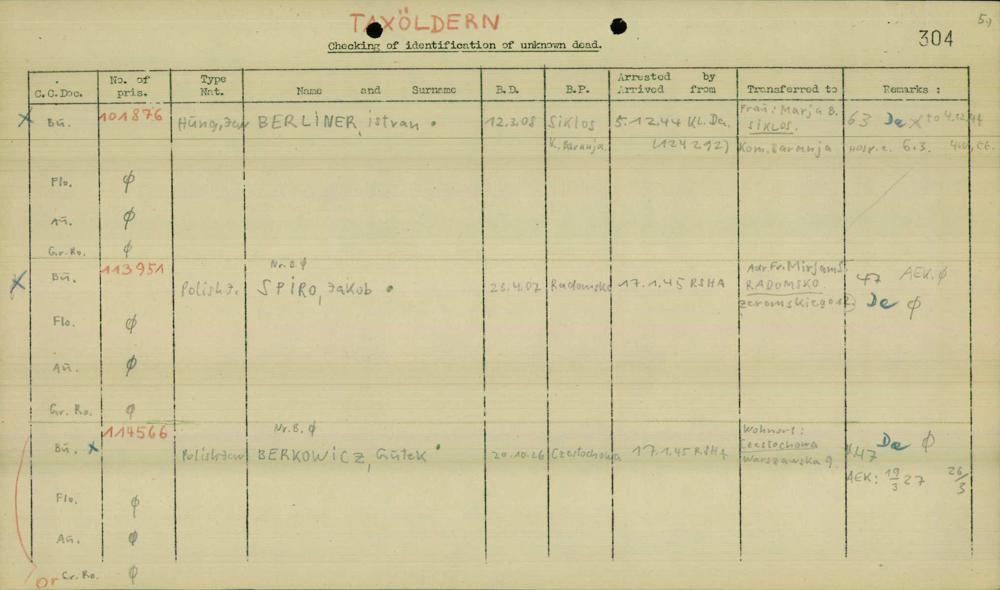 TAXÖLDERN
5.)
304
Checking of identification of unknown dead.
C.C.Doc. No. of pris. Type Nat. Name and Surname B.D. B.P. Arrested by Arrived from Transferred to Remarks :
x Bu. 101876 Hung. Jew BERLINER, istvan 12.3.08 Siklos 5.12.44 KL. Da. Frau: Marja B. SIKLOS. 63 Da X to 4.12.44
K. Baranja. (124292) Kom. Baranja Hosp. 6.3.
Flo. ϕ
Au. ϕ
Gr.Ro. ϕ
x Bu. 113951 Nr.B.ϕ
Polish J. SPIRO, Jakob 23.4.02 Radomsko 17.1.45 RSHA Mirjam S. RADOMSKO 47 AEK. ϕ
Zeromskiego 12 Da ϕ
Flo. ϕ
Au. ϕ
Gr. Ro. ϕ
Bu. x 114566 Nr.B. ϕ
Polish Jew BERKOWICZ, Gutek 20.10.26 Czestochowa 17.1.45 RSHA Wohnort: Czestochowa Warszawska 9. X47 Da ϕ
AEK: 19/3 27 26/3
Flo. ϕ
Au. ϕ
or Gr.Ro. ϕ